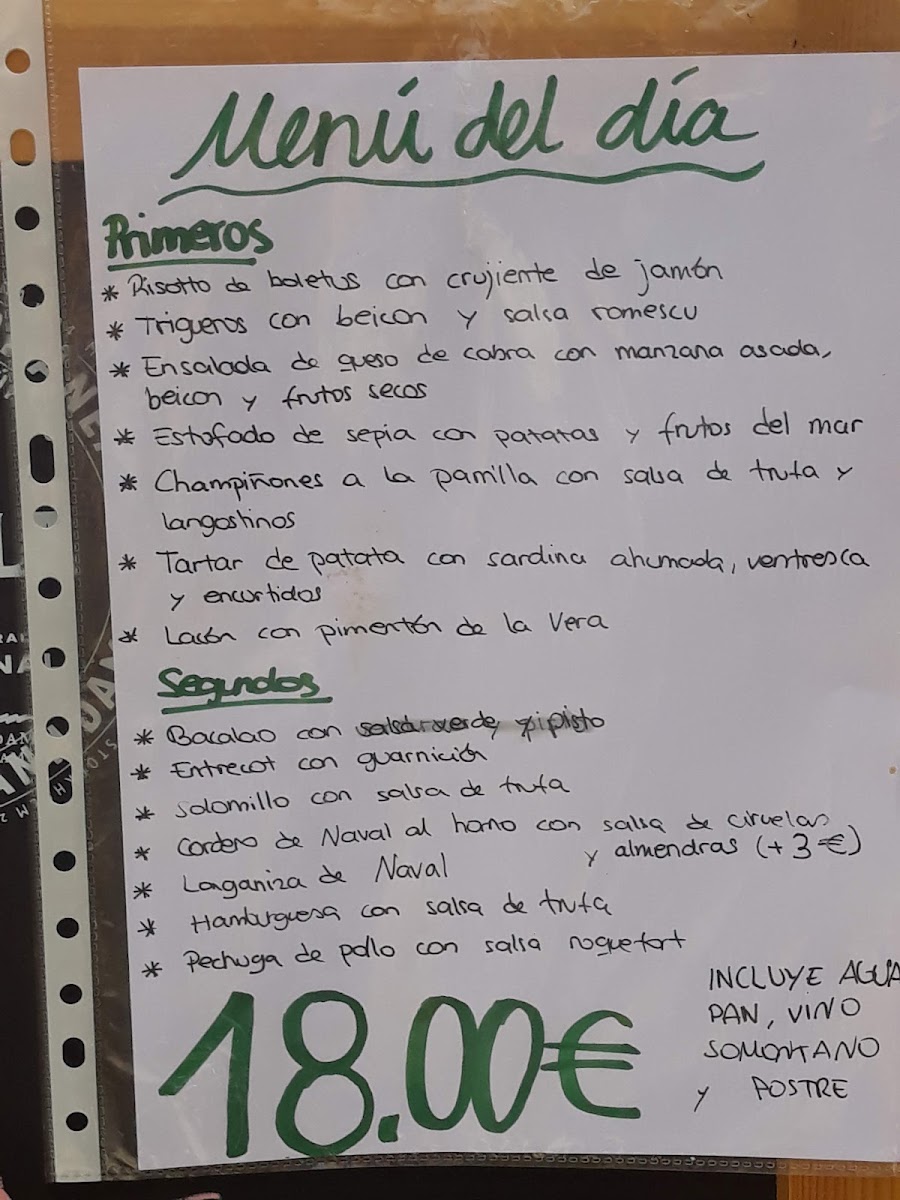 Menú del día
Primeros
* Risotto de boletus con crujiente de jamón
* Trigueros con beicon y salsa romescu
* Ensalada de queso de cabra con manzana asada,
beicon y frutos secos
* Estofado de sepia con patatas y frutos del mar
* Champiñones a la parrilla con salsa de trufa y
langostinos
* Tartar de patata con sardina ahumada, ventresca
y encurtidos
* Lacón con pimentón de la Vera
Segundos
* Bacalao con salsa verde y pipisto
* Entrecot con guarnición
* Solomillo con salsa de trufa
* Cordero de Naval al horno con salsa de ciruelas
y almendras (+3€)
* Longaniza de Naval
* Hamburguesa con salsa de trufa
* Pechuga de pollo con salsa roquefort
18.00€
INCLUYE AGUA
PAN, VINO
SOMONTANO
y POSTRE